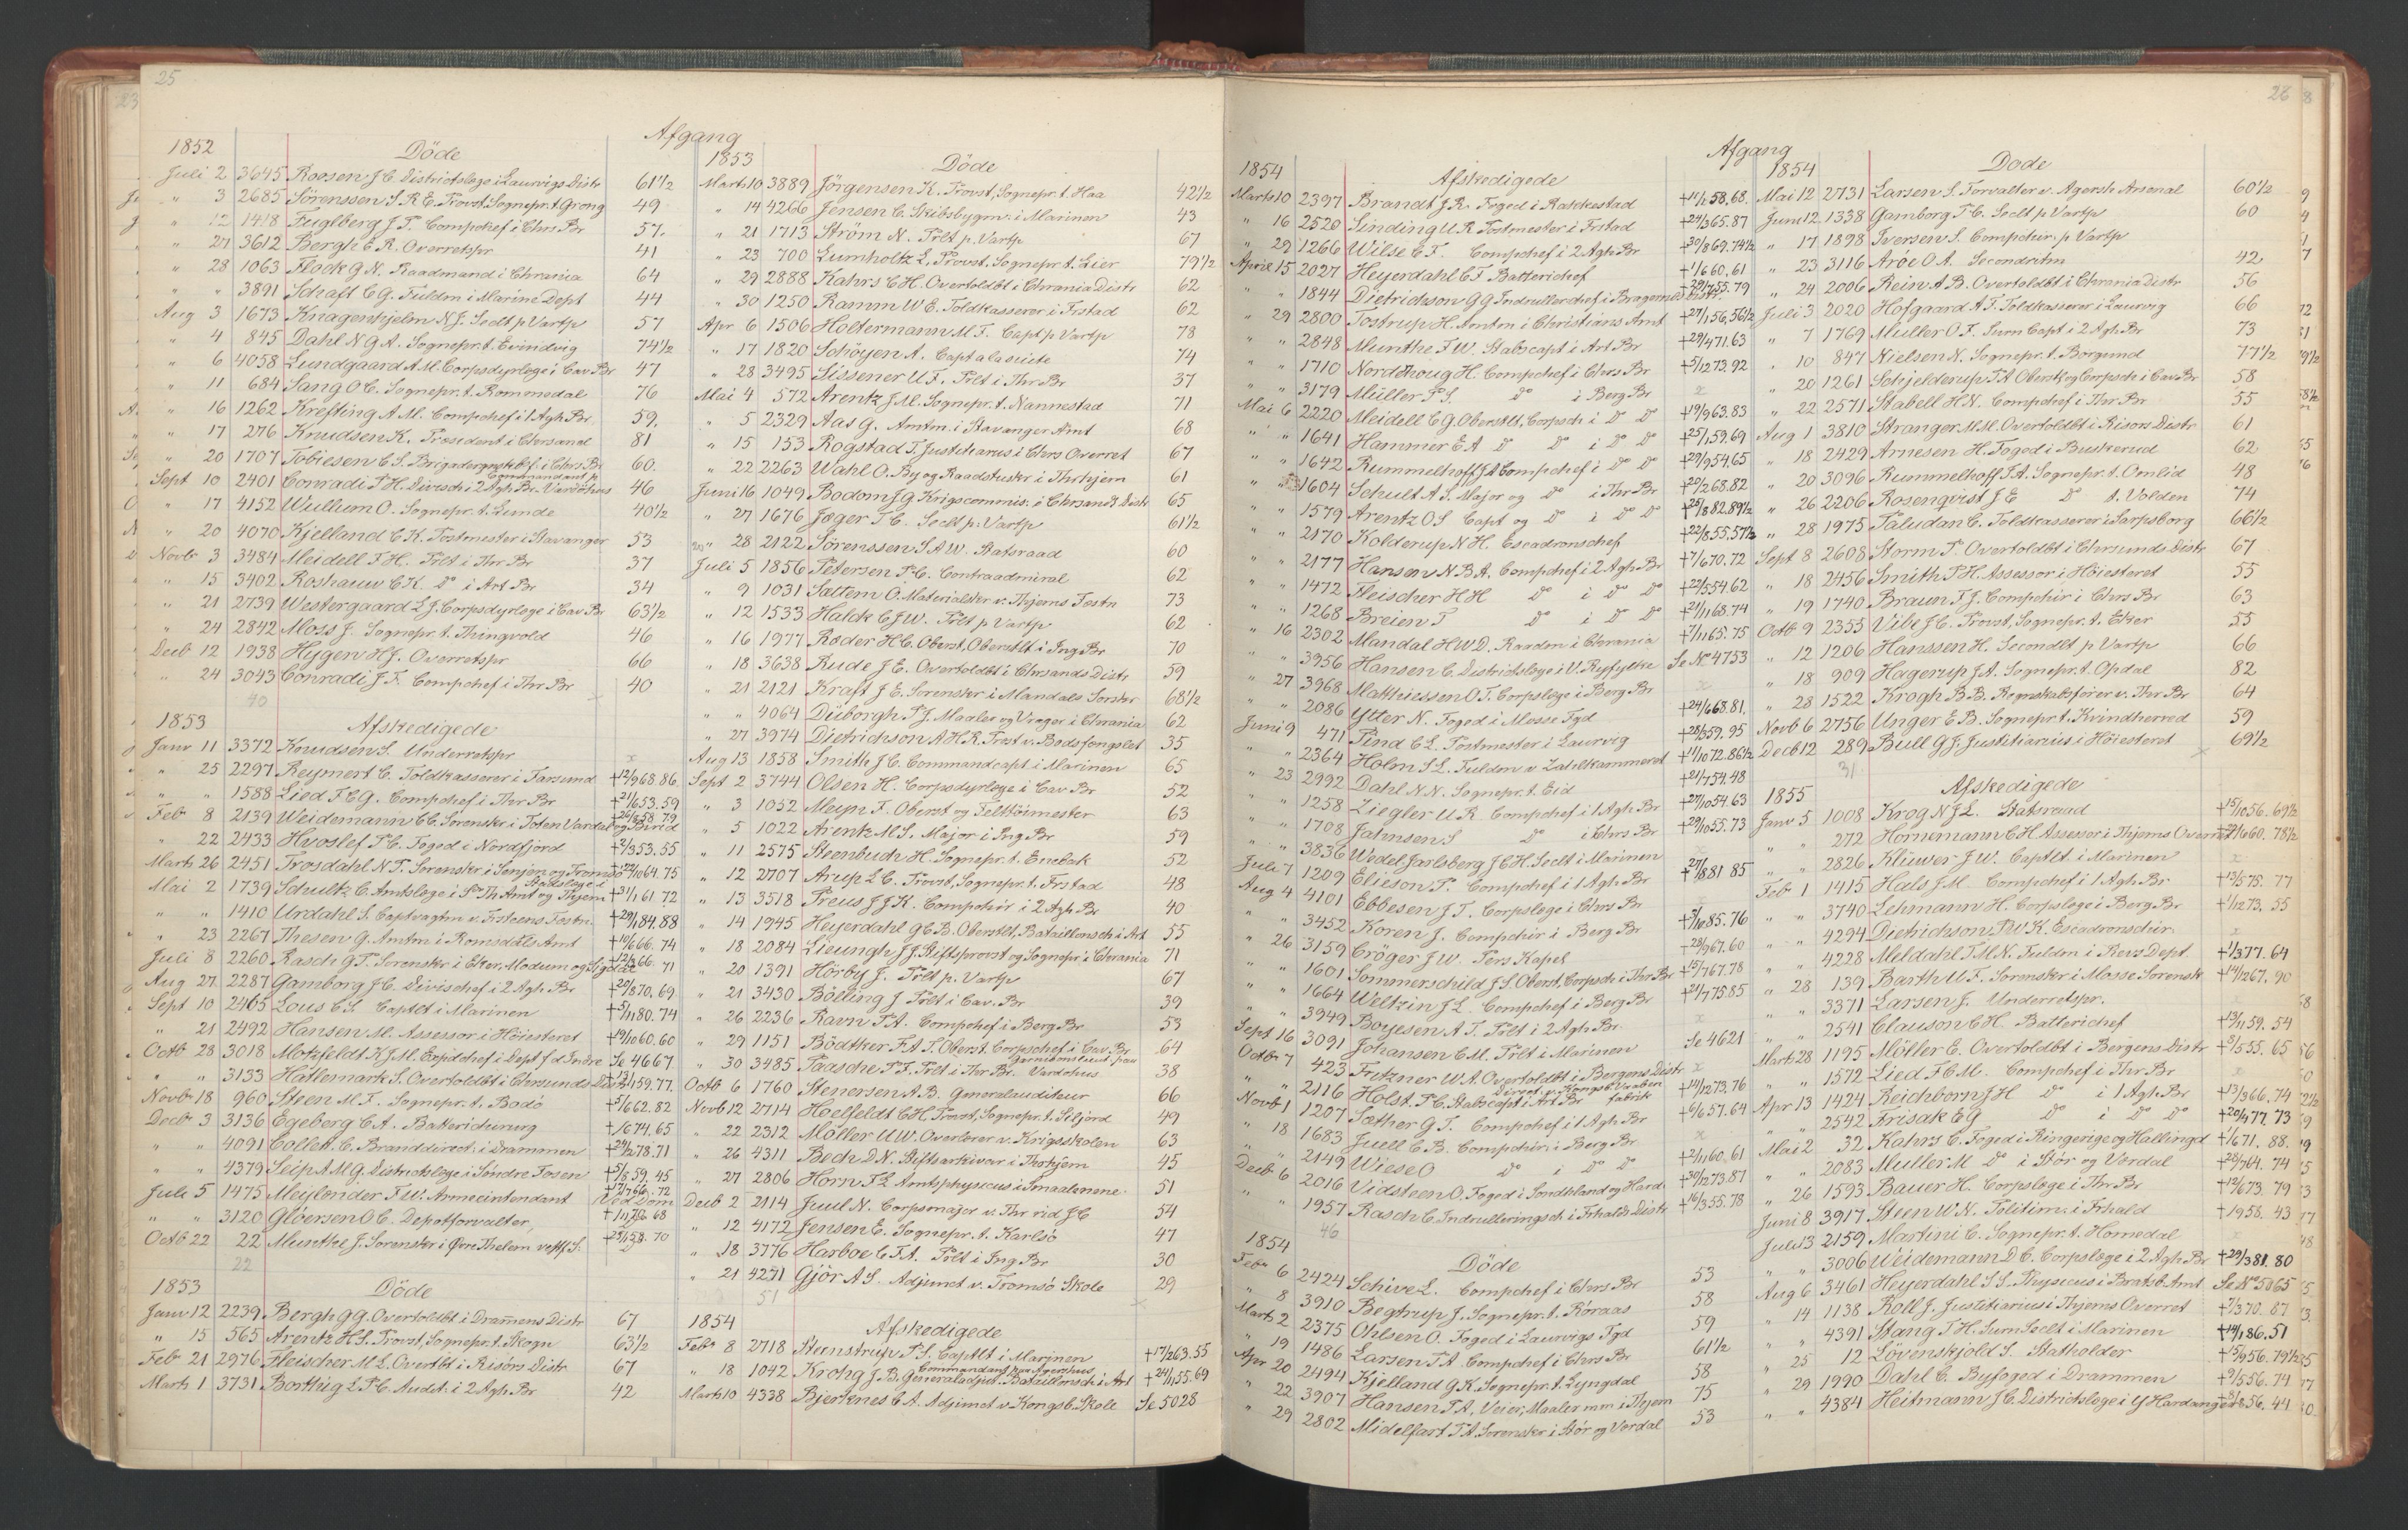 25
Afgang
1852
Döde
Juli 2 3645 Roosen J C Districtslæge i Laurvigs Distr 61½
" 3 2685 Sörenssen S. R. E. Provst, Sognepr. t. Grong 49
" 12 1418 Fuglberg J P. Compchef i Chrs Br 57.
" 27 3612 Bergh E R. Overretspr 41
" 28 1063 Flock G N. Raadmand i Chrania 64
" " 3891 Schaft C G. Fuldm i Marine Dept 44
Aug 3 1673 Knagenhjelm N J. Seclt p Vartp 57
" 4 845 Dahl N G A. Sognepr. t. Evindvig 74½
" 6 4058 Lundgaard A M. Corpsdyrlæge i Cav Br 47
" 11 684 Sang O C. Sognepr. t. Rommedal 76
" 16 1262 Krefting A M. Compchef i 1 Agh Br 59.
" 17 276 Knudsen K. Præsident i Chrsand 81
" 20 1707 Tobiesen C S. Brigaderegnskbf. i Chrs Br 60.
Sept 10 2401 Conradi P. H. Divisch i 2 Agh Br. Commandant p Vardöhus 46
" 17 4152 Wullum O. Sognepr. t. Lunde 40½
" 20 4070 Kjelland C K. Postmester i Stavanger 53
Novb 3 3484 Meidell F H. Prlt i Thr Br 37
" 15 3402 Roshauw C H. Do i Art Br 34
" 21 2739 Westergaard L J. Corpsdyrlæge i Cav Br 63½
" 24 2842 Moss J. Sognepr. t. Thingvold 46
Decb 12 1938 Hygen H J. Overretspr 66
" 24 3043 Conradi J F. Compchef i Thr Br 40
40
1853
Afskedigede
Janr 11 3372 Knudsen S. Underretspr x
" 25 2297 Reymert C. Toldkasserer i Farsund +12/9 68.86
" " 1588 Lied F C G. Compchef i Thr Br +21/6 53.59
Feb 8 2139 Weidemann C C. Sorenskr i Toten Vardal og Birid +26/8 58.79
" 22 2433 Hvoslef P C. Foged i Nordfjord +2/3 53.55
Marts 26 2451 Trosdahl N P. Sorenskr i Senjen og Tromsö +22/10 64.75
Mai 2 1739 Schultz C. Amtslæge i S. Th Amt og Stadslæge i Thjem +31/1 61.72
" " 1410 Urdahl S. Captvagtm v. Frsteens Festn. +29/1 84.88
" 23 2267 Thesen G. Amtm i Romsdals Amt +10/6 66.74
Juli 8 2260 Rasch G P. Sorenskr i Eker, Modum og Sigdal +12/2 66. 71
Aug 27 2287 Gamborg J C. Divischef i 2 Agh Br +20/8 70.69
Sept 10 2465 Lous C S. Captlt i Marinen +5/11 80.74
" 21 2492 Hansen M. Assessor i Höiesteret +19/10 60.60
Octb 28 3018 Motzfeldt K J M. Expdchef i Dept f d Indre Se 4667
" " 3133 Hattlemark S. Overtoldbt i Chrsunds Distr +13/11 59.77.
Novb 18 960 Steen M F. Sognepr. t. Bodö +5/6 62.82
Decb 3 3136 Egeberg C A. Batterichirurg +1/6 74.65
" " 4091 Collett C. Branddirect. i Drammen +24/12 78.71
" " 4379 Seip A M G. Districtslæge i Söndre Fosen +5/8 59.45
Juli 5 1475 Meylænder F W. Armeeintendant +17/7 66.72
" " 3120 Glöersen O C. Depotforvalter, Ved Dom +1/11 76 68
Octb 22 22 Munthe J. Sorenskr i Övre Thelem. vestf S. +25/1 58.70
22
1853
Döde
Janr 12 2239 Bergh G G. Overtoldbt i Dram̄ens Distr 67
" 15 565 Arentz H S. Provst, Sognepr. t. Skogn 63½
Feb 21 2976 Fleischer M L. Overtbt i Risörs Distr. 67
Marts 1 3731 Borthig L P C. Audit. i 2 Agh Br 42
1853
Döde
Marts 10 3889 Jörgensen K. Provst, Sognepr. t. Haa 42½
" 14 4266 Jensen C. Skibsbygm. i Marinen 43
" 21 1713 Ström N. Prlt p. Vartp 67
" 23 700 Lumholtz L. Provst, Sognepr t. Lier 79½
" 29 2888 Kahrs C H. Overtoldbt i Chrania Distr 62
" 30 1250 Ramm W E. Toldkasserer i Frstad 62
Apr 6 1506 Holtermann M F. Capt p Vartp 78
" 17 1820 Schöyen A. Capt a la suiete 74
" 28 3495 Sissener U F. Prlt i Thr Br 37
Mai 4 572 Arentz J M. Sognepr. t. Nannestad 71
" 5 2329 Aas G. Amtm. i Stavanger Amt 68
" 15 153 Rogstad T. Justitiarius i Chrs Overret 67
" 22 2263 Wahl O. By og Raadstuskr i Thrhjem 61
Juni 16 1049 Bodom J G. Krigscommis. i Chrsands Distr 65
" 27 1676 Jæger P C. Seclt p. Vartp 61½
" 28 2122 Sörenssen S A W. Statsraad 60
Juli 5 1856 Petersen P C. Contraadmiral 62
" 9 1031 Saltem O. Materialskr v. Thjems Festn 73
" 12 1533 Halck C J W. Prlt p Vartp 62
" 16 1977 Roder H C. Oberst, Oberstlt i Ing Br 70
" 18 3638 Rude J E. Overtoldbt i Chrsands Distr 59
" 21 2121 Kraft J E. Sorenskr i Mandals Sorskr 68½
" " 4064 Düborgh P J. Maaler og Vrager i Chrania 62
" 27 3974 Dietrichson A H R. Præst v. Bodsfængslet 35
Aug 13 1858 Smith J C. Commandcapt i Marinen 65
Sept 2 3744 Olsen H. Corpsdyrlæge i Cav Br 52
" 3 1052 Meyn F. Oberst og Felttöimester 63
" 5 1022 Arentz M S. Major i Ing Br 59
" 11 2575 Steenbuch H. Sognepr. t. Enebak 52
" 12 2707 Arup L C. Provst, Sognepr. t. Frstad 48
" 13 3518 Preus J J K. Compchir i 2 Agh Br 40
" 14 1945 Heyerdahl G C B. Oberstlt, Bataillonsch i Art 55
" 18 2084 Lieungh J J. Stiftsprovst og Sognepr. i Chrania 71
" 20 1391 Hörby J. Prlt p. Vartp 67
" 21 3430 Bölling J Prlt i Cav. Br 39
" 26 2236 Ravn P A. Compchef i Berg Br 53
" 29 1151 Bödtker F. A P. Oberst. Corpschef i Cav. Br 64
" 30 3485 Paasche P F. Prlt i Thr Br. Garnisonslæge paa Vardöhus 38
Octb 6 1760 Stenersen A B. Generalauditeur 66
Novb 12 2714 Hoelfeldt C H. Provst, Sognepr. t. Siljord 49
" 22 2312 Möller U W. Overlærer v. Krigsskolen 63
" 26 4311 Bech D N. Stiftsarkivar i Thrhjem 45
" 27 2806 Horn P L. Amtsphysicus i Smaalenene. 51
Decb 2 2114 Juul N. Corpsmajor v. Thr rid JC 54
" 12 4172 Jensen E. Sognepr. t. Karlsö 47
" 18 3776 Harboe C F A. Prlt i Ing Br 30
" 21 4291 Gjör A S. Adjunct v. Tromsö Skole 29
51
1854
Afskedigede
Feb 8 2718 Steenstrup P S. Captlt i Marinen +17/2 63.55
" 18 1042 Krohg J B. Generaladjut. Commandant paa Agershuus Bataillonsch i Art +24/1 55.69
Marts 10 4338 Bjerknes C A. Adjunct v. Kongsb. Skole Se 5028
26
Afgang
1854
Afskedigede
Marts 10 2397 Brandt J R. Foged i Rakkestad +11/2 58.68.
" 16 2520 Sinding U R. Postmester i Frstad +24/3 65.87
" 29 1266 Wilse C F. Compchef i 2 Agh Br +30/8 69.74½
April 15 2027 Heyerdahl C F Batterichef +1/6 60.61
" " 1844 Dietrichson G G Indrullerchef i Bragernes Distr. +29/7 55.79
" 29 2800 Tostrup H. Amtm i Christians Amt +27/1 56.56½
" " 2848 Munthe F W. Stabscapt i Art Br +29/4 71.63
" " 1710 Nordthoug H. Compchef i Chrs Br +5/12 73.92
" " 3179 Müller P S. Do i Berg Br x
Mai 6 2220 Meidell C G. Oberstlt, Corpsch i Do Do +19/9 63.83
" " 1641 Hammer E A Do Do i Do Do +25/1 59.69
" " 1642 Rummelhoff J A Compchef i Do Do +29/9 54.65
" " 1604 Schult A S. Major og Do i Thr Br +22/2 68.82
" " 1579 Arentz O S Capt og Do i Do Do +25/8 82.89½
" " 2170 Kolderup N H. Escadronschef +22/8 55.57½
" " 2177 Hansen N B A. Compchef i 2 Agh Br +7/6 70.72
" " 1472 Fleischer H H Do i Do Do +22/5 54.62
" " 1268 Breien T Do i Do Do +21/11 68.74
" 16 2302 Mandal H W D. Raadm i Chrania +7/11 65.75
" " 3956 Hansen C. Districtslæge i V. Ryfylke Se No 4753
" 27 3968 Matthiessen O T. Corpslæge i Berg Br x
" " 2086 Ytter N. Foged i Mosse Fgd +24/6 68.81.
Juni 9 471 Pind C L. Postmester i Laurvig +28/3 59.95
" " 2364 Holm S L. Fuldm v Zahlkammeret +11/10 72.86½
" 23 2992 Dahl N N. Sognepr. t. Eid +21/7 54.48
" " 1258 Ziegler U R Compchef i 1 Agh Br +27/10 54.63
" " 1708 Jahnsen S Do i Chrs Br +29/10 55.73
" " 3836 Wedel Jarlsberg J C H. Seclt i Marinen x
Juli 7 1209 Elieson P. Compchef i 1 Agh Br +27/8 81 85
Aug 4 4101 Ebbesen J T. Corpslæge i Chrs Br x
" " 3452 Koren J. Compchir i Berg Br +3/10 85.76
" 26 3159 Cröger J W. Pers Kapel +28/9 67.60
" " 1601 Sommerschild J S. Oberst, Corpsch i Thr Br +15/7 67.78
" " 1664 Weltzin J L. Compchef i Berg Br +21/7 75.85
" " 3949 Boyesen A T. Prlt i 2 Agh Br x
Sept 16 3091 Johansen C M. Prlt i Marinen Se 4621
Octb 7 423 Fritzner W A. Overtoldbt i Bergens Distr x
" " 2116 Holst P C. Stabscapt i Art Br Direct v. Kongsb. Vaabenfabrik +14/12 73.76
Novb 1 1207 Sæther G T. Compchef i 1 Agh Br +6/6 57.64
" 18 1683 Juell C B. Compchir. i Berg Br x
" " 2149 Wiese O Do i Do Do +2/11 60.61
Decb 6 2016 Vidsteen O. Foged i Söndhland og Hard. +30/12 73.87
" " 1957 Rasch C. Indrulleringsch i Frhalds Distr +16/3 55.78
46
1854
Döde
Feb 6 2424 Schive L. Compchef i Chrs Br 53
" 8 3910 Begtrup J. Sognepr. t. Röraas 58
Marts 2 2375 Ohlsen O. Foged i Laurvigs Fgd 59
" 19 1486 Larsen P A. Compchef i Chrs Br 61½
Apr 20 2494 Kjelland G K. Sognepr. t. Lyngdal 58
" 22 3907 Hansen P A, Veier, Maaler m m i Thjem 75
" 29 2802 Midelfart P A. Sorenskr i Stör og Værdal 53
1854
Döde
Mai 12 2731 Larsen S. Forvalter v. Agersh Arsenal 60½
Juni 12 1338 Gamborg P C. Seclt p Vartp 60
" 17 1898 Iversen S. Compchir. p Vartp
" 23 3116 Aröe O A. Secondritm 42
" 24 2006 Rein A B. Overtoldbt i Chrania Distr 56
Juli 3 2020 Hofgaard A F. Toldkasserer i Laurvig 66
" 7 1769 Müller O F. Surn Capt i 2 Agh Br 73
" 10 847 Nielsen N. Sognepr. t. Borgund 77½
" 20 1261 Schjelderup P A Oberst og Corpsch i Cav Br 58
" 22 2571 Stabell H N. Compchef i Thr Br 55
Aug 1 3810 Stranger M M. Overtoldbt i Risörs Distr 61
" 18 2429 Arnesen H. Foged i Buskerud 62
" 20 3096 Rummelhoff P A. Sognepr. t. Omlid 48
" 26 2206 Rosenqvist J E Do t. Volden 74
" 28 1975 Paludan C. Toldkasserer i Sarpsborg 66½
Sept 8 2608 Storm P. Overtoldbt i Chrsunds Distr 67
" 18 2456 Smith P H. Assessor i Höiesteret 55
" 19 1740 Braun F J. Compchir i Chrs Br 63
Octb 9 2355 Vibe J C. Provst, Sognepr. t. Eker 55
" 12 1206 Hanssen H. Secondlt p Vartp 66
" 18 909 Hagerup J A. Sognepr. t. Opdal 82
" 28 1522 Krogh B B. Regnskabsfører v. Thr Br 64
Novb 6 2756 Unger E B. Sognepr. t. Kvindherred 59
Decb 12 289 Bull G J. Justitiarius i Höiesteret 69½
31.
1855
Afskedigede
Janr 5 1008 Krog N J L. Statsraad +15/10 56.69½
" " 272 Hornemann C H. Assessor i Thjems Overret 60.78½
" " 2826 Klüwer J W. Captlt. i Marinen x
Feb 1 1415 Hals J M. Compchef i 1 Agh Br +13/5 75.77
" " 3740 Lehmann H. Corpslæge i Berg Br +1/12 73.55
" " 4294 Dietrichson P W K. Escadronschir. x
" " 4228 Meldahl T M N. Fuldm i Revs Dept. +1/3 77.64
" 28 139 Barth M F. Sorenskr i Mosse Sorensk +14/12 67.90
" " 3371 Larsen J. Underretspr. x
" " 2541 Clauson C H. Batterichef +13/11 59.54
Marts 28 1195 Möller E. Overtoldbt i Bergens Distr +3/5 55.65
" " 1572 Lied F C M. Compchef i Thr Br x
Apr 13 1424 Reichborn J H Do i 1 Agh Br +13/3 66.74
" " 2542 Frisak E G Do i Do Do +20/4 77.73
Mai 2 32 Kahrs C. Foged i Ringerige og Hallingd +1/6 71.88.
" 2083 Muller M Do i Stör og Værdal +28/7 64.74
" 26 1593 Bauer H. Corpslæge i Thr Br +12/6 73.79
Juni 8 3917 Steen W N. Politim. i Frhald +1/9 58.43
Juli 13 2159 Martini C. Sognepr. t. Hornedal x
" " 3006 Weidemann D C. Corpslæge i 2 Agh Br +29/3 81.80
Aug 6 3461 Heyerdahl S S. Physicus i Bratsb. Amt Se No 5065
" 14 1138 Roll J. Justitiarius i Thjems Overret +7/3 70.87
" " 4391 Stang P H. Surn Seclt i Marinen +14/1 86.51
" 25 12 Lövenskjold S. Statholder +15/9 56.79½
" 29 1990 Dahl C. Byfoged i Drammen +9/5 56.74
" " 4384 Heitmann J C. Districtslæge i Y Hardanger +8/8 56.44